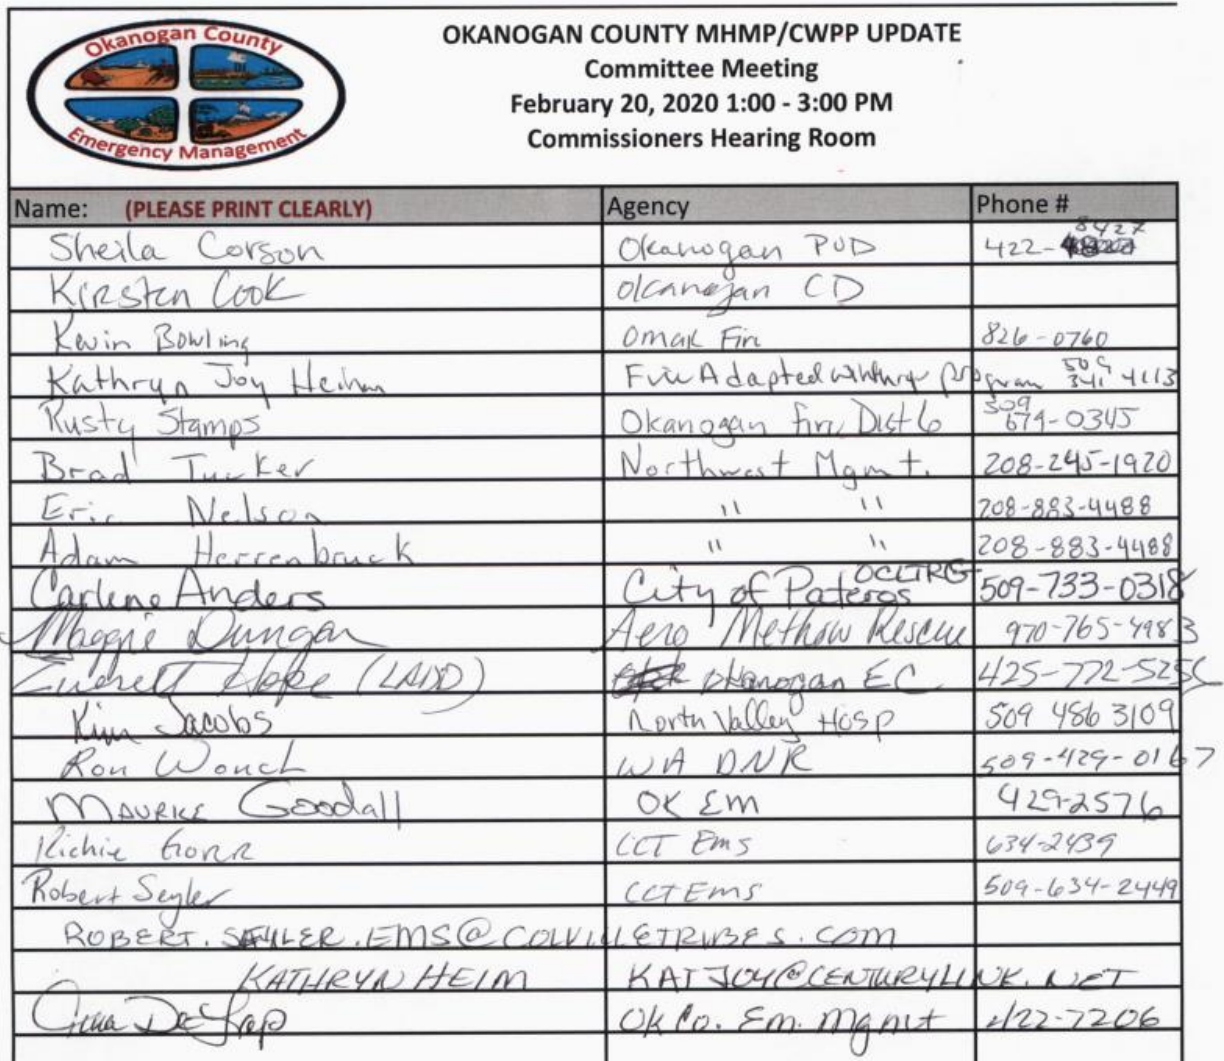 Okanogan County
Emergency Management
OKANOGAN COUNTY MHMP/CWPP UPDATE
Committee Meeting
February 20, 2020 1:00 - 3:00 PM
Commissioners Hearing Room
Name: (PLEASE PRINT CLEARLY) Agency Phone #
Sheila Corson Okanogan PUD 422-8427
Kirsten Cook Okanogan CD
Kevin Bowling Omak Fire 826-0760
Kathryn Joy Heim Fire Adapted program 509 341 4113
Rusty Stamps Okanogan fire Dist 6 509
Brad Tucker Northwest Mgmt. 208-245-1920
Eric Nelson " " 208-883-4488
Adam Herrenbruck " " 208-883-4488
Carlene Anders City of Pateros OCLTRG 509-733-0318
Maggie Dungan Aero Methow Rescue 970-765-4983
Everett (LADD) Okanogan EC
Kim Jacobs North Valley Hosp 509 486 3109
Ron Wonch WA DNR 509-429-0167
MAURICE Goodall OK EM 429-2576
Richie CCT Ems 634-2439
Robert Seyler CCT Ems 509-634-2449
KATHRYN HEIM KATJOY@CENTURYLINK.NET
OK Co. Em. Mgmnt 422-7206